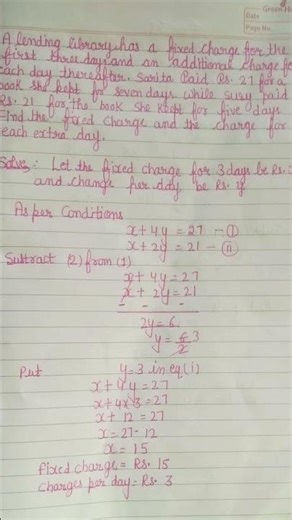 Date
Page No.
A lending library has a fixed charge for the
first three days and an additional charge for
each day thereafter. Sarita Paid Rs. 27 for a
book she kept for seven days. while Susy paid
Rs. 21 for the book she kept for five days
Find the fixed charge and the charge for
each extra day.
Solve: Let the fixed charge for 3 days be Rs.
and change per day be Rs. y
As per Conditions
x + 4y = 27 - (I)
x + 2y = 21 - (II)
Subtract (2) from (1)
x + 4y = 27
x + 2y = 21
- - -
2y = 6
y = 6/2 3
Put y = 3 in eq (i)
x + 4y = 27
x + 4x3 = 27
x + 12 = 27
x = 27 - 12
x = 15
fixed charge = Rs. 15
charges per day = Rs. 3